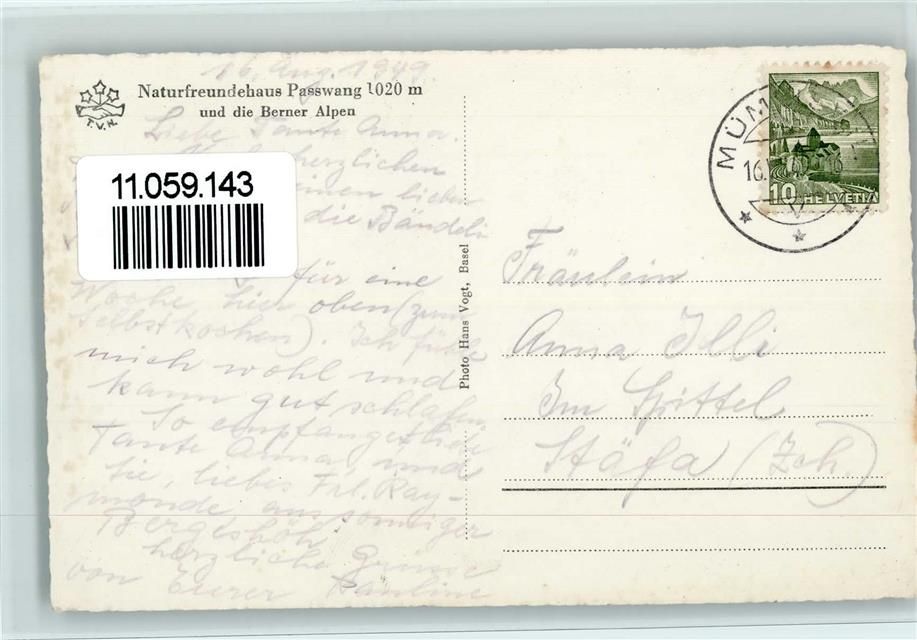 16. Aug. 1949.
Naturfreundehaus Passwang 1020 m
und die Berner Alpen
T.V.H.
Liebe Tante Anna.
herzlichen
einen lieben
die Bändeli
11.059.143
für eine
Woche hier oben (zum
Selbstkochen). Ich fühle
mich wohl und
kann gut schlafen.
So empfanget liebe
Tante Anna und
Sie, liebes Frl. Ray-
monde aus sonniger
Bergeshöh
herzliche Grüsse
von Eurer Pauline
Photo Hans Vogt, Basel
MÜM
16.
10 HELVETIA
Fräulein
Anna Illi
Im Spittel
Stäfa (Zch.)